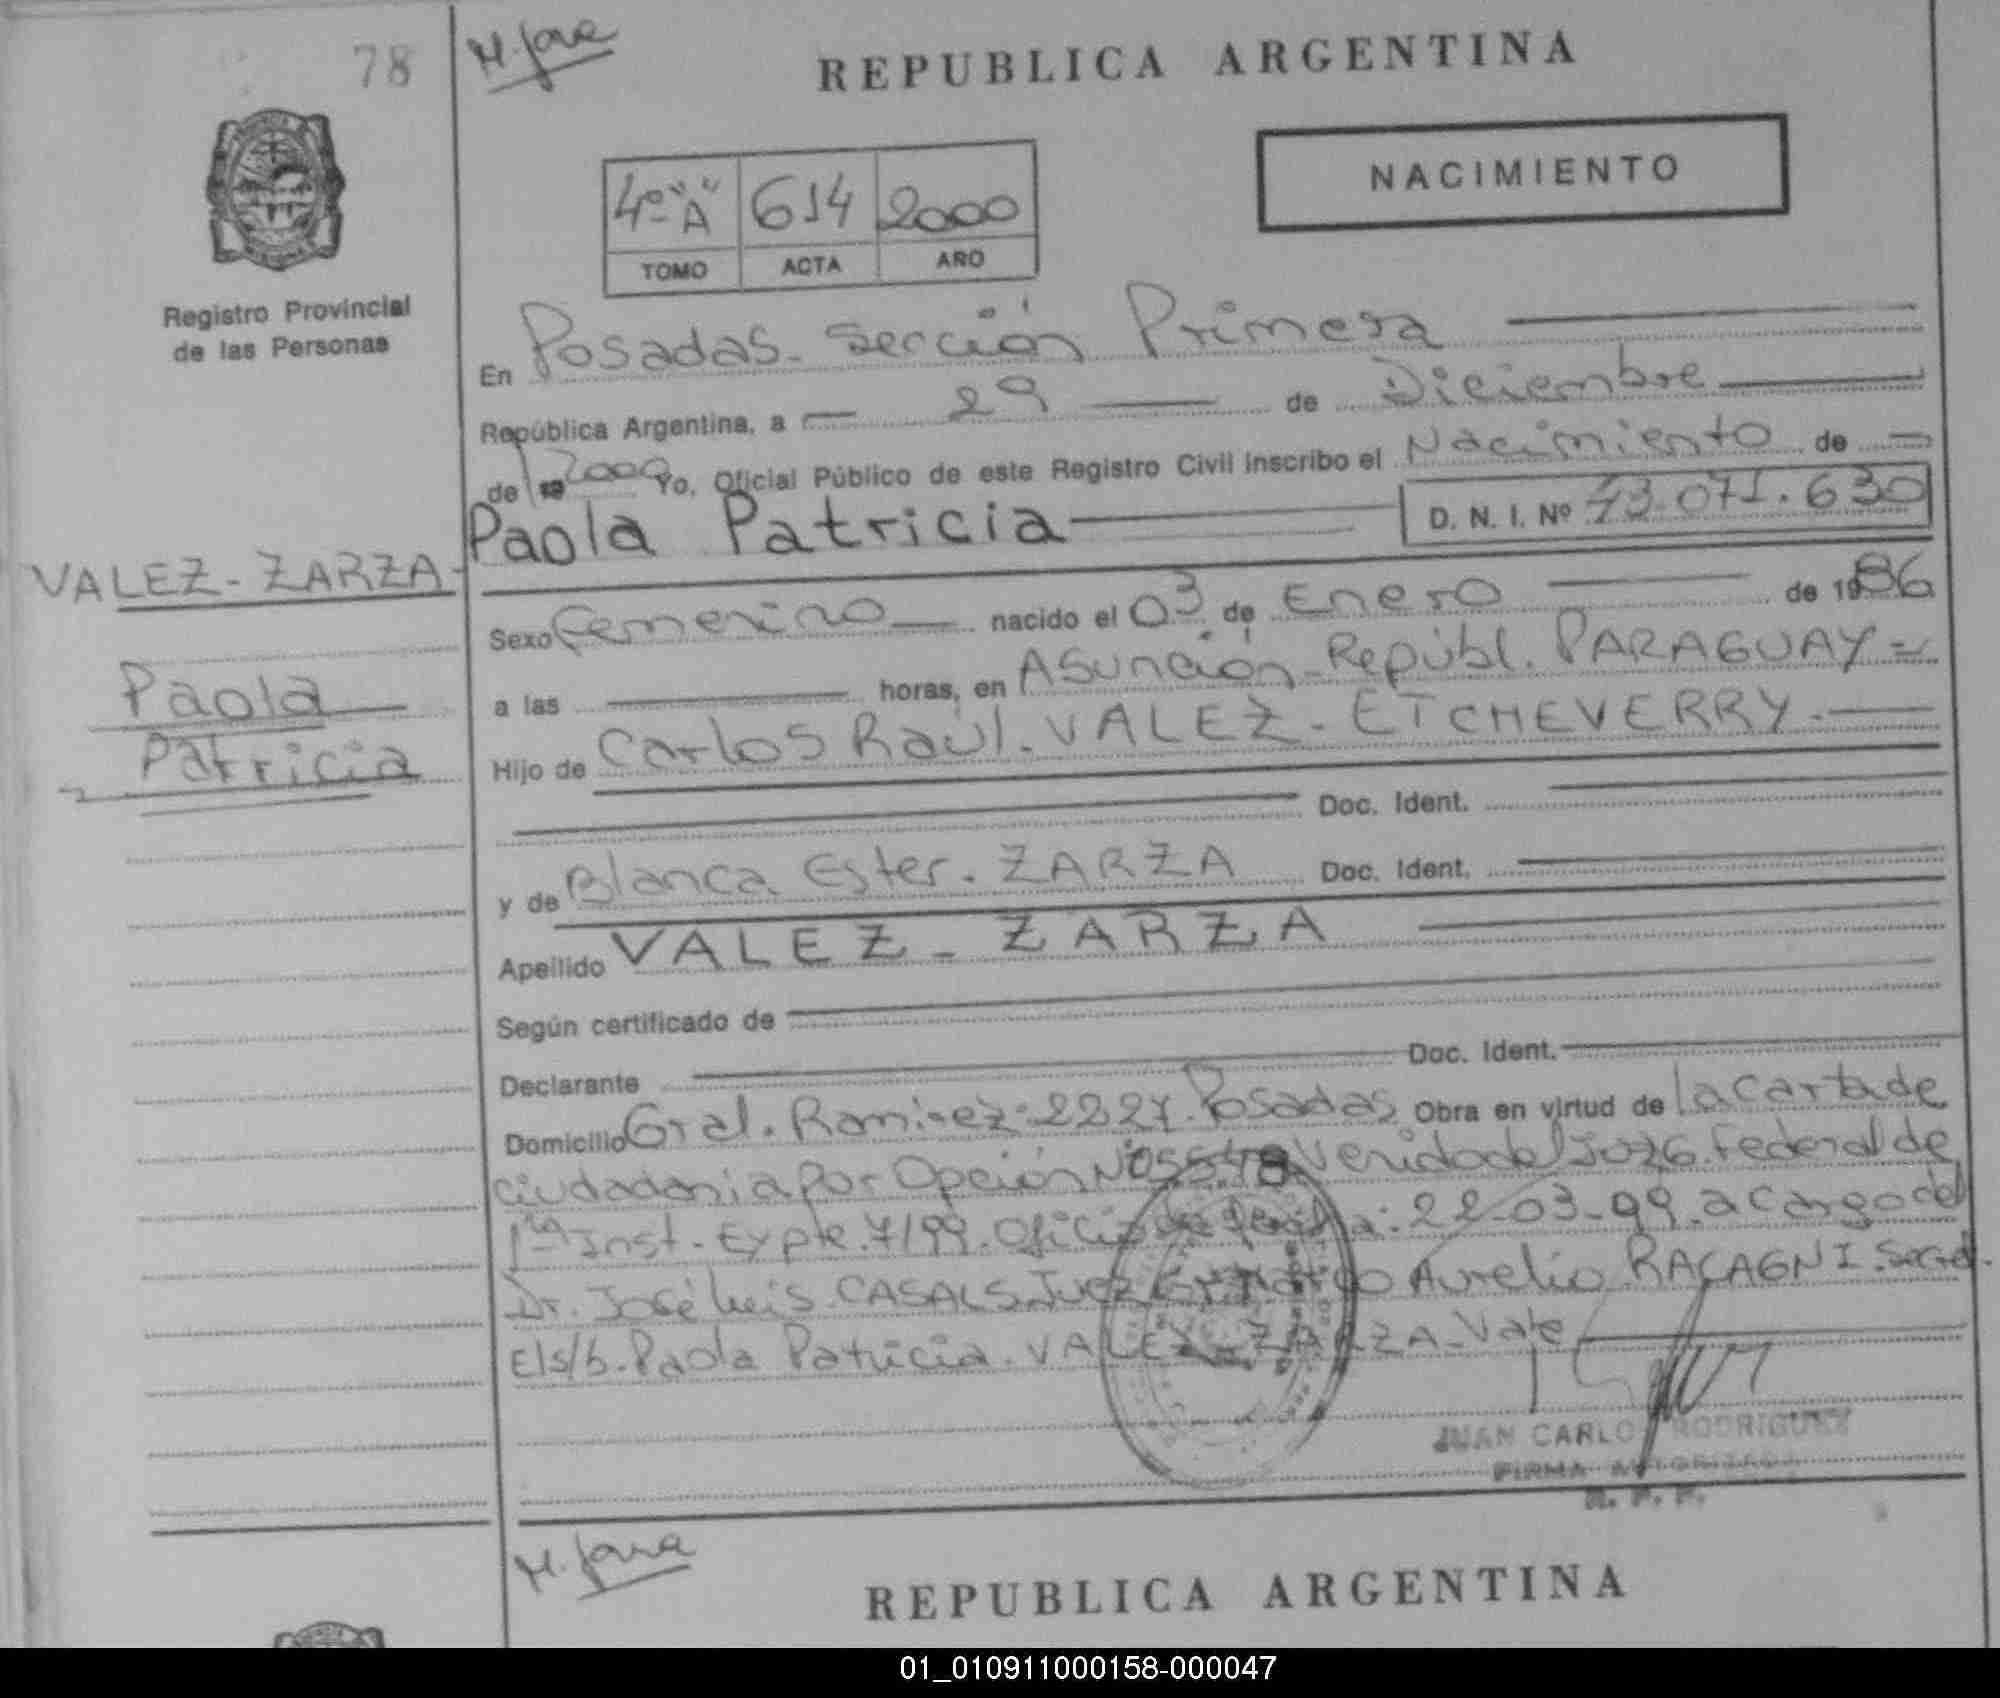 78
M. Jara
REPUBLICA ARGENTINA
NACIMIENTO
4º "A" 614 2000
TOMO ACTA AÑO
Registro Provincial
de las Personas
En Posadas - Sección Primera
República Argentina, a 29 de Diciembre
de 19 2000 Yo, Oficial Público de este Registro Civil inscribo el Nacimiento de
Paola Patricia D. N. I. Nº 43.071.630
VALEZ - ZARZA
Paola
Patricia
Sexo femenino nacido el 03 de Enero de 1986
a las horas, en Asunción - Repúbl. PARAGUAY
Hijo de Carlos Raúl. VALEZ - ETCHEVERRY
Doc. Ident.
y de Blanca Ester. ZARZA Doc. Ident.
Apellido VALEZ - ZARZA
Según certificado de
Declarante Doc. Ident.
Domicilio Gral. Ramirez 2227. Posadas Obra en virtud de la carta de
ciudadania por Opción Nº 5548 Venido del Juzg. Federal de
1ra Inst - Expte. 7/99. Oficio de fecha: 22-03-99. a cargo del
Dr. José Luis CASALS Juez Marco Aurelio RACAGNI. Secret.
E/s/b. Paola Patricia. VALEZ - ZARZA - Vale
JUAN CARLOS RODRIGUEZ
FIRMA AUTORIZADA
R. P. P.
M. Jara
REPUBLICA ARGENTINA
01_010911000158-000047